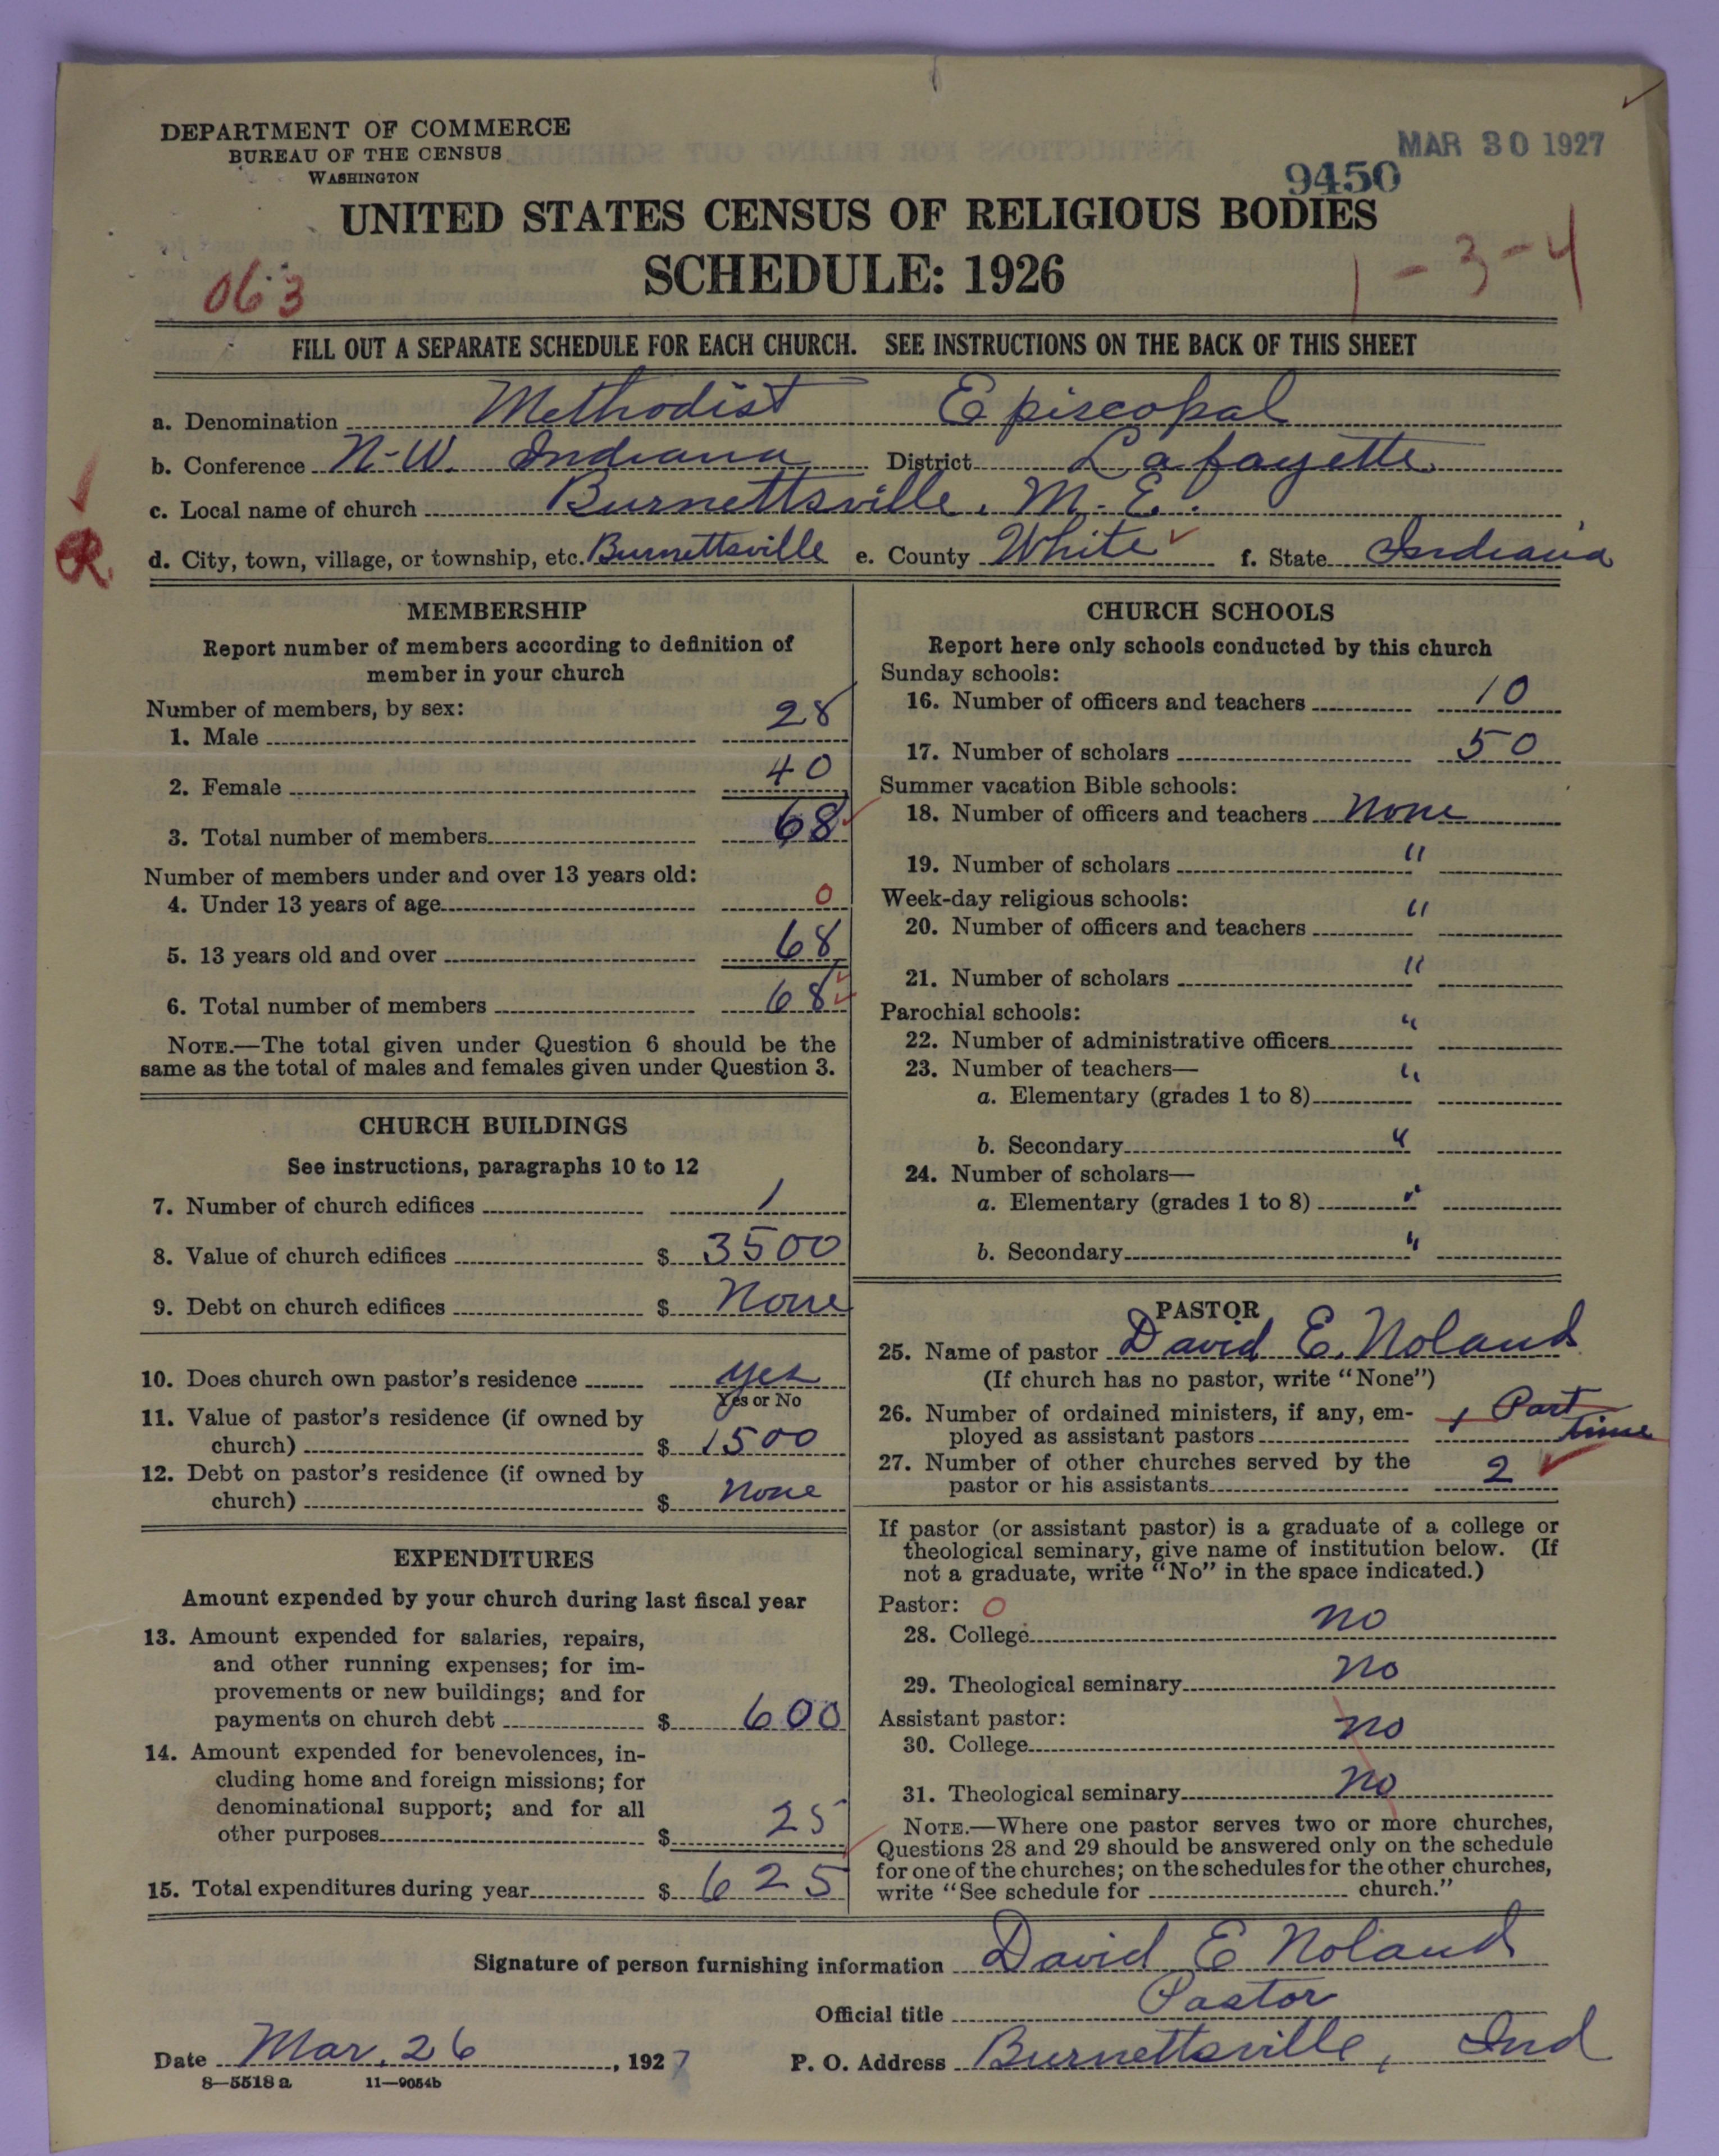 DEPARTMENT OF COMMERCE
BUREAU OF THE CENSUS
WASHINGTON
MAR 30 1927
9450
UNITED STATES CENSUS OF RELIGIOUS BODIES
SCHEDULE: 1926
063
1-3-4
FILL OUT A SEPARATE SCHEDULE FOR EACH CHURCH. SEE INSTRUCTIONS ON THE BACK OF THIS SHEET
a. Denomination Methodist Episcopal
b. Conference N-W. Indiana District Lafayette
c. Local name of church Burnettsville, M.E.
d. City, town, village, or township, etc. Burnettsville e. County White f. State Indiana
R
MEMBERSHIP
Report number of members according to definition of
member in your church
Number of members, by sex:
1. Male 28
2. Female 40
3. Total number of members 68
Number of members under and over 13 years old:
4. Under 13 years of age 0
5. 13 years old and over 68
6. Total number of members 68
NOTE.—The total given under Question 6 should be the
same as the total of males and females given under Question 3.
CHURCH BUILDINGS
See instructions, paragraphs 10 to 12
7. Number of church edifices 1
8. Value of church edifices $ 3500
9. Debt on church edifices $ None
10. Does church own pastor's residence yes
Yes or No
11. Value of pastor's residence (if owned by
church) $ 1500
12. Debt on pastor's residence (if owned by
church) $ None
EXPENDITURES
Amount expended by your church during last fiscal year
13. Amount expended for salaries, repairs,
and other running expenses; for im-
provements or new buildings; and for
payments on church debt $ 600
14. Amount expended for benevolences, in-
cluding home and foreign missions; for
denominational support; and for all
other purposes $ 25
15. Total expenditures during year $ 625
CHURCH SCHOOLS
Report here only schools conducted by this church
Sunday schools:
16. Number of officers and teachers 10
17. Number of scholars 50
Summer vacation Bible schools:
18. Number of officers and teachers None
19. Number of scholars "
Week-day religious schools:
20. Number of officers and teachers "
21. Number of scholars "
Parochial schools:
22. Number of administrative officers "
23. Number of teachers—
a. Elementary (grades 1 to 8) "
b. Secondary "
24. Number of scholars—
a. Elementary (grades 1 to 8) "
b. Secondary "
PASTOR
25. Name of pastor David E. Noland
(If church has no pastor, write "None")
26. Number of ordained ministers, if any, em-
ployed as assistant pastors 1 Part time
27. Number of other churches served by the
pastor or his assistants 2
If pastor (or assistant pastor) is a graduate of a college or
theological seminary, give name of institution below. (If
not a graduate, write "No" in the space indicated.)
Pastor: 0
28. College no
29. Theological seminary no
Assistant pastor:
30. College no
31. Theological seminary no
NOTE.—Where one pastor serves two or more churches,
Questions 28 and 29 should be answered only on the schedule
for one of the churches; on the schedules for the other churches,
write "See schedule for church."
Signature of person furnishing information David E Noland
Official title Pastor
Date Mar. 26, 1927 P. O. Address Burnettsville, Ind
8—5518 a 11—9054b